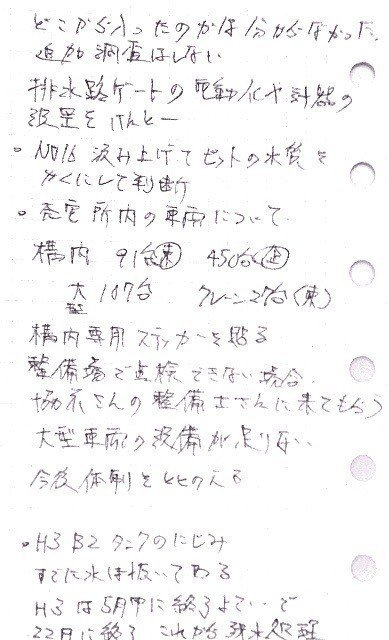 どこから入ったのかは分からなかった。
追加調査はしない
排水路ゲートの電動化や計器の
設置をけんとー
・No16 汲み上げてピットの水質を
かくにして判断
・発電所内の車両について
構内 91台(東) 450台(企)
大型 107台 クレーン27台(東)
構内専用ステッカーを貼る
整備場で点検できない場合、
協力さんの整備士さんに来てもらう
大型車両の設備が足りない
今後体制をととのえる
・H3 B2 タンクのにじみ
すでに水は抜いてある
H3は5月中に終了よてい で
22日に終了 これから残水処理